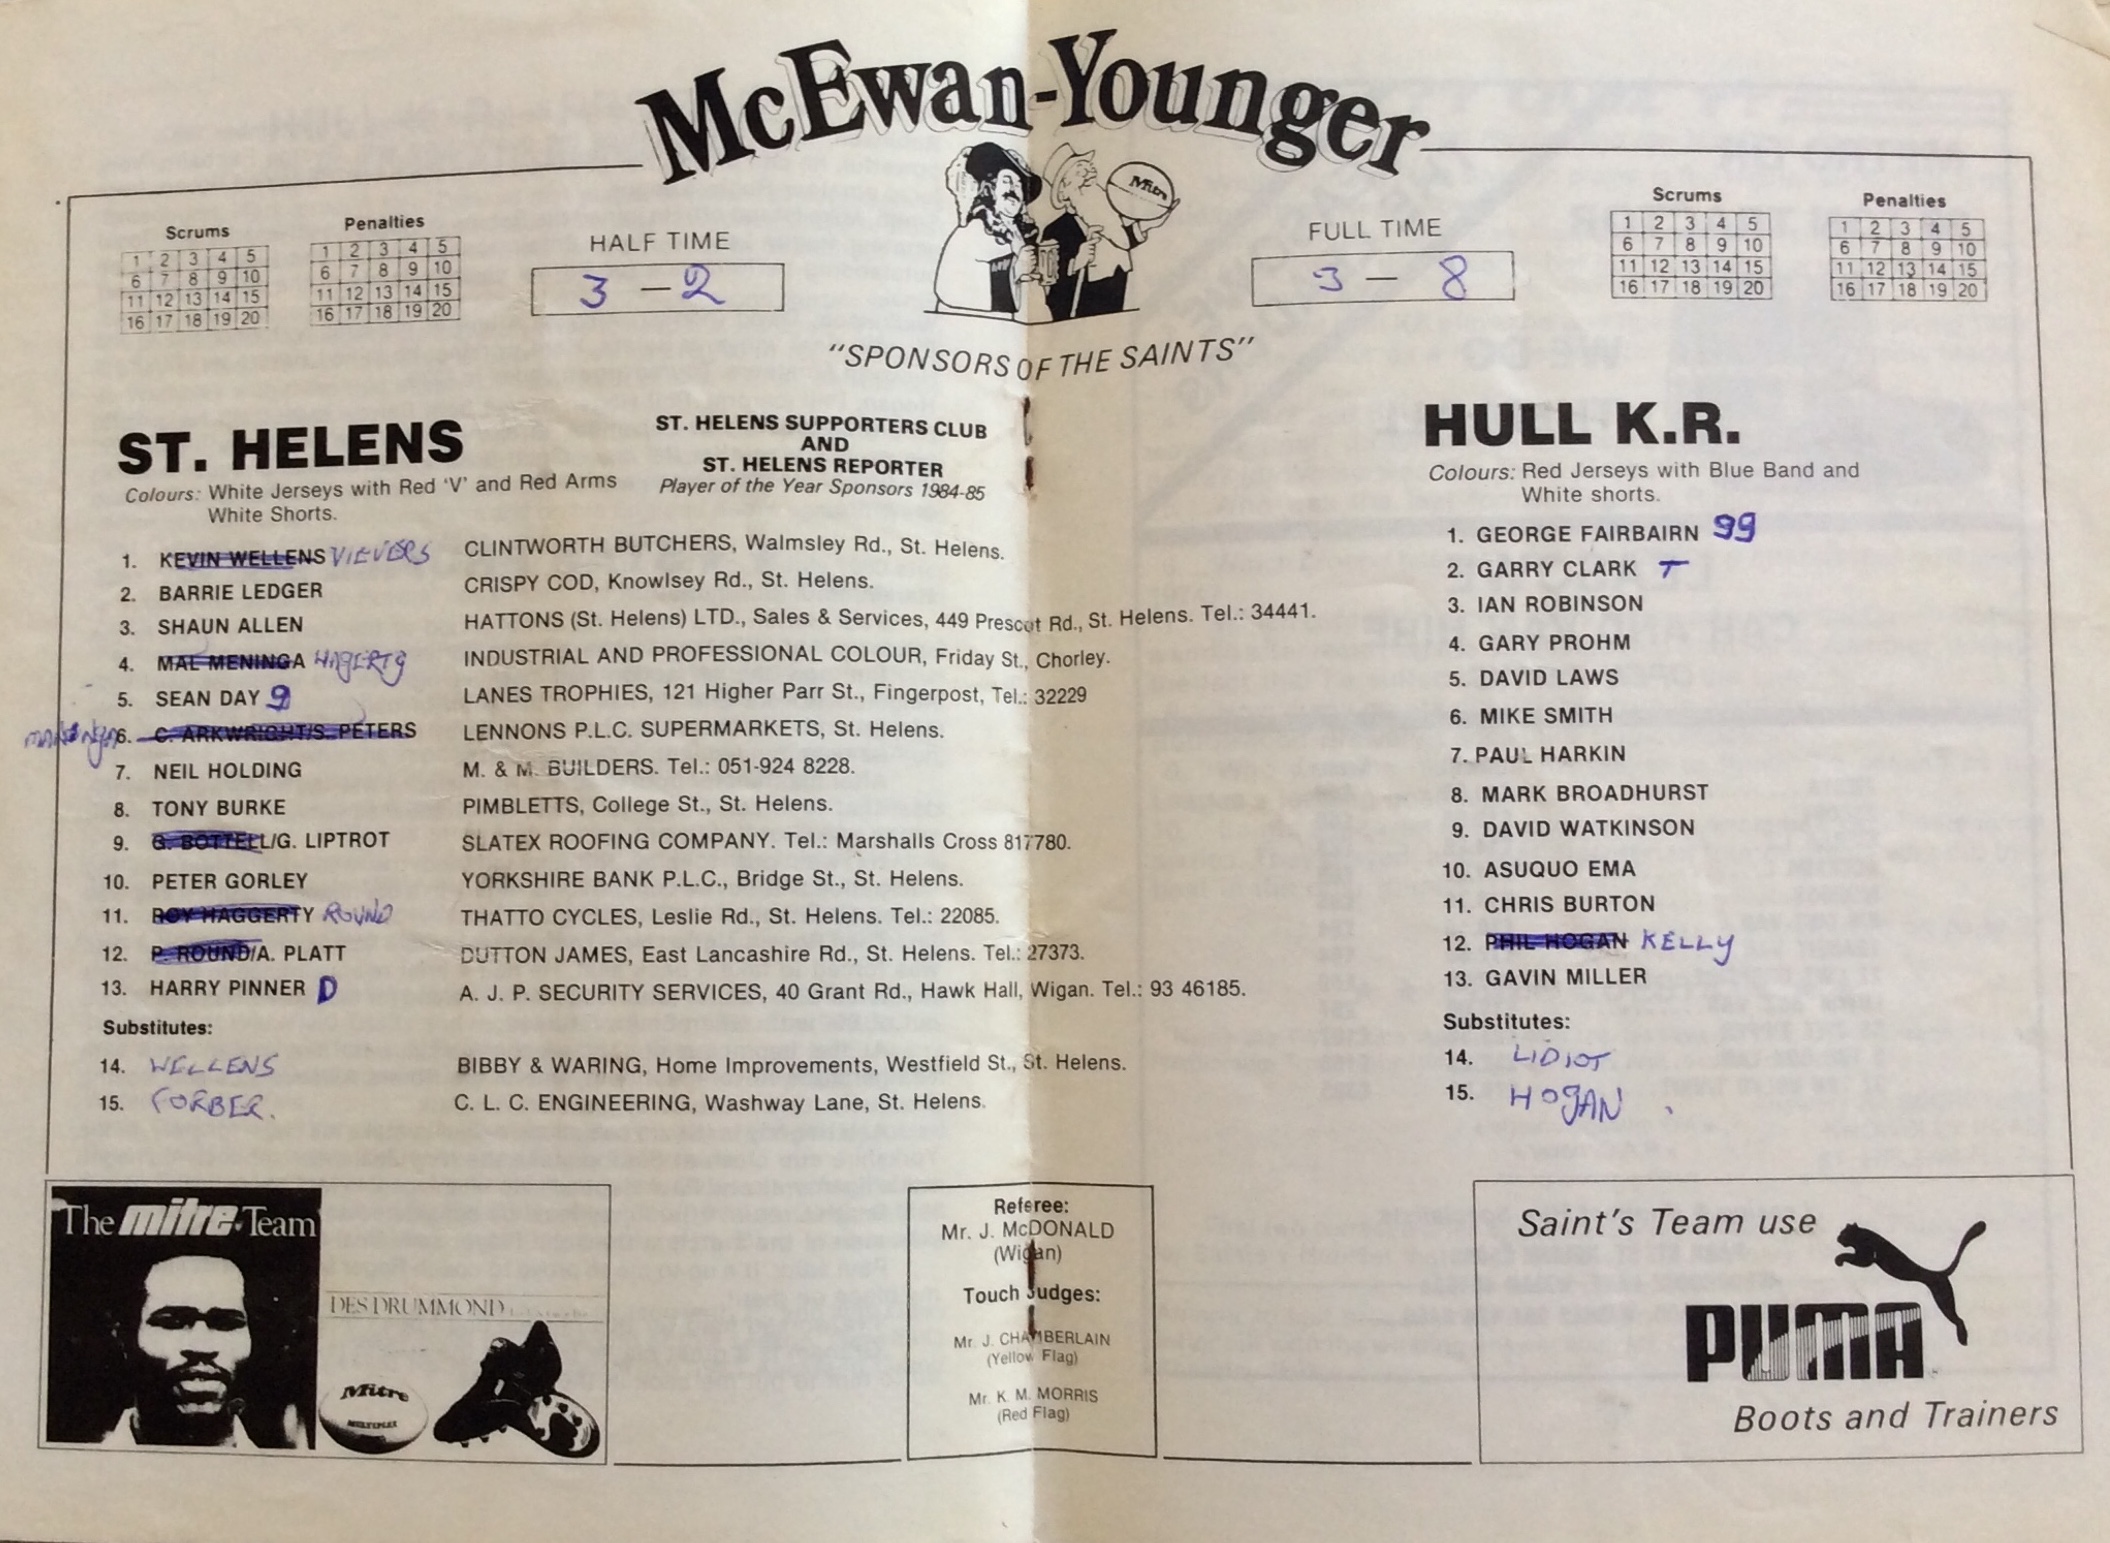 McEwan-Younger
Mitre
Scrums
1 2 3 4 5
6 7 8 9 10
11 12 13 14 15
16 17 18 19 20
Penalties
1 2 3 4 5
6 7 8 9 10
11 12 13 14 15
16 17 18 19 20
HALF TIME
3 - 2
FULL TIME
3 - 8
Scrums
1 2 3 4 5
6 7 8 9 10
11 12 13 14 15
16 17 18 19 20
Penalties
1 2 3 4 5
6 7 8 9 10
11 12 13 14 15
16 17 18 19 20
"SPONSORS OF THE SAINTS"
ST. HELENS
Colours: White Jerseys with Red 'V' and Red Arms
White Shorts.
ST. HELENS SUPPORTERS CLUB
AND
ST. HELENS REPORTER
Player of the Year Sponsors 1984-85
1. KEVIN WELLENS VIEVERS CLINTWORTH BUTCHERS, Walmsley Rd., St. Helens.
2. BARRIE LEDGER CRISPY COD, Knowlsey Rd., St. Helens.
3. SHAUN ALLEN HATTONS (St. Helens) LTD., Sales & Services, 449 Prescot Rd., St. Helens. Tel.: 34441.
4. MAL MENINGA HAGERTY INDUSTRIAL AND PROFESSIONAL COLOUR, Friday St., Chorley.
5. SEAN DAY 9 LANES TROPHIES, 121 Higher Parr St., Fingerpost, Tel.: 32229
6. C. ARKWRIGHT/S. PETERS LENNONS P.L.C. SUPERMARKETS, St. Helens.
7. NEIL HOLDING M. & M. BUILDERS. Tel.: 051-924 8228.
8. TONY BURKE PIMBLETTS, College St., St. Helens.
9. G. BOTTELL/G. LIPTROT SLATEX ROOFING COMPANY. Tel.: Marshalls Cross 817780.
10. PETER GORLEY YORKSHIRE BANK P.L.C., Bridge St., St. Helens.
11. ROY HAGGERTY ROUND THATTO CYCLES, Leslie Rd., St. Helens. Tel.: 22085.
12. P. ROUND/A. PLATT DUTTON JAMES, East Lancashire Rd., St. Helens. Tel.: 27373.
13. HARRY PINNER D A. J. P. SECURITY SERVICES, 40 Grant Rd., Hawk Hall, Wigan. Tel.: 93 46185.
Substitutes:
14. WELLENS BIBBY & WARING, Home Improvements, Westfield St., St. Helens.
15. FORBER. C. L. C. ENGINEERING, Washway Lane, St. Helens.
HULL K.R.
Colours: Red Jerseys with Blue Band and
White shorts.
1. GEORGE FAIRBAIRN 99
2. GARRY CLARK T
3. IAN ROBINSON
4. GARY PROHM
5. DAVID LAWS
6. MIKE SMITH
7. PAUL HARKIN
8. MARK BROADHURST
9. DAVID WATKINSON
10. ASUQUO EMA
11. CHRIS BURTON
12. PHIL HOGAN KELLY
13. GAVIN MILLER
Substitutes:
14. LIDIOT
15. HOGAN
The mitre Team
DES DRUMMOND
Mitre
MULTIPLEX
Referee:
Mr. J. McDONALD
(Wigan)
Touch Judges:
Mr. J. CHAMBERLAIN
(Yellow Flag)
Mr. K. M. MORRIS
(Red Flag)
Saint's Team use
PUMA
Boots and Trainers